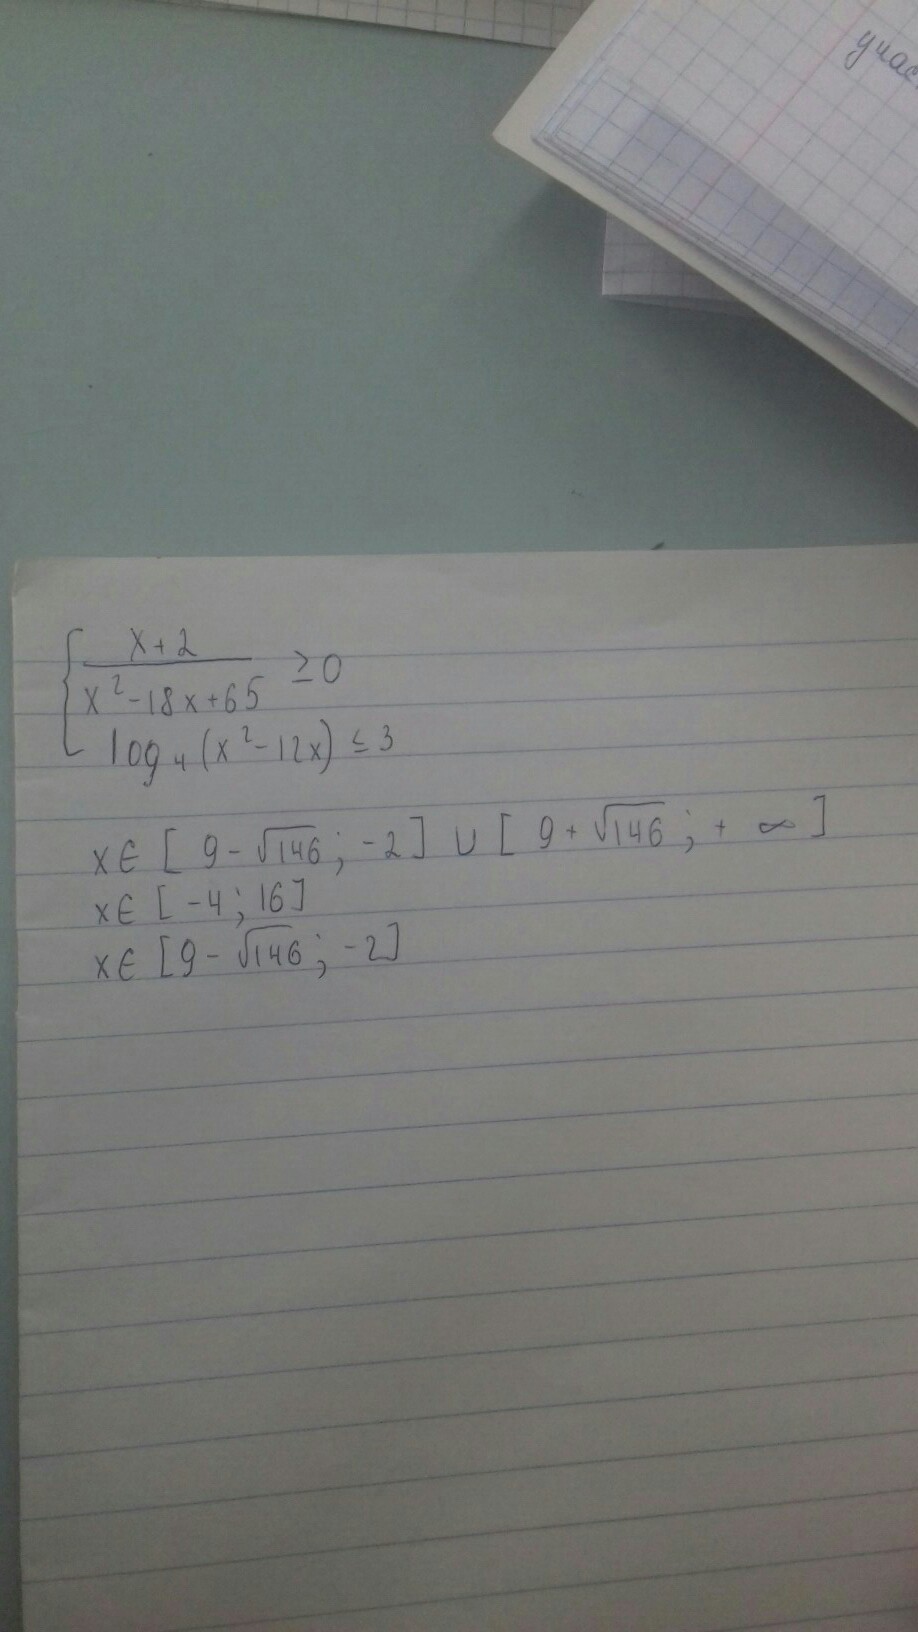 учас
{ x+2 / x²-18x+65 ≥0
log₄(x²-12x) ≤ 3
x∈ [ 9-√146 ; -2 ] ∪ [ 9+√146 ; + ∞ ]
x∈ [ -4 ; 16 ]
x∈ [ 9-√146 ; -2 ]